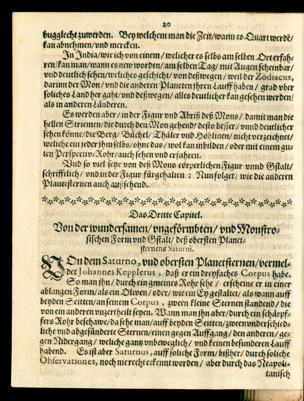 20
bugglecht zuwerden. Bey welchem man die Zeit / wann es Quart werde /
kan abnehmen / vnd mercken.
In India / wie ich von einem / welcher es selbs am selben Ort erfah-
ren / kan man / wann es new worden / am selben Tag / mit Augen scheinbar /
vnd deutlich sehen / welches geschicht / von deßwegen / weil der Zodiacus,
darinn der Mon / vnd die anderen Planeten jhren Lauff haben / grad vber
solches Land her gaht / vnd deßwegen / alles deutlicher kan gesehen werden /
als in anderen Länderen.
Es werden aber / in der Figur vnd Abriß deß Mons / damit man die
hellen Striemen / die durch den Mon gehend / desto besser / vnnd deutlicher
sehen könne / die Berg / Büchel / Thäler vnd Hölinen / nicht verzeichnet /
welche ein jeder jhm selbs / ohne das / wol kan inbilden / oder mit einem gu-
ten Perspectiv-Rohr / auch sehen vnd erfahren.
Vnd so viel seye von deß Mons cörperlichen Figur vnnd Gstalt /
schrifftlich / vnd in der Figur fürgehalten : Nun folget / wie die anderen
Planetsternen auch außsehend.
Das Dritte Capitel.
Von der wundersamen / vngeförmbten / vnd Monstro-
sischen Form vnd Gstalt / deß obersten Planet-
sternens Saturni.
VOn dem Saturno, vnd obersten Planetsternen / vermel-
det Johannes Kepplerus, daß er ein dreyfaches Corpus habe.
So man jhn / durch ein gmeines Rohr sehe / erscheine er in einer
ablangen Form / als ein Olwen / oder / wie ein Ey gestaltet / als wann auff
beyden Seitten / an seinem Corpus, zween kleine Sternen standend / die
von ein anderen vnzertheilt seyen. Wann man jhn aber / durch ein schärpf-
fers Rohr beschawe / da sehe man / auff beyden Seitten / zween vnderschied-
liche vnd abgesünderte Sternen / einen gegen Auffgang / den anderen / ge-
gen Nidergang / welche ganz vnbeweglich / vnd keinen besunderen Lauff
habend. Es ist aber Saturnus, auff solche Form / bißher / durch solliche
Observationes, noch nie recht erkennt worden / aber durch das Neapoli-
tanisch